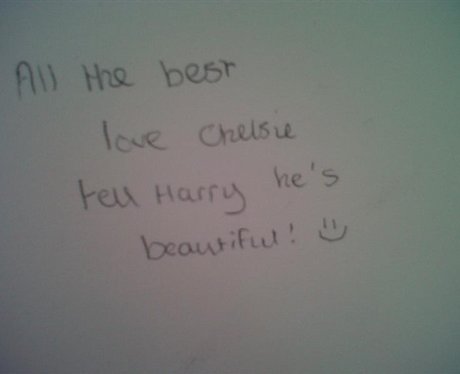 All the best
love Chelsie
tell Harry he's
beautiful! :)